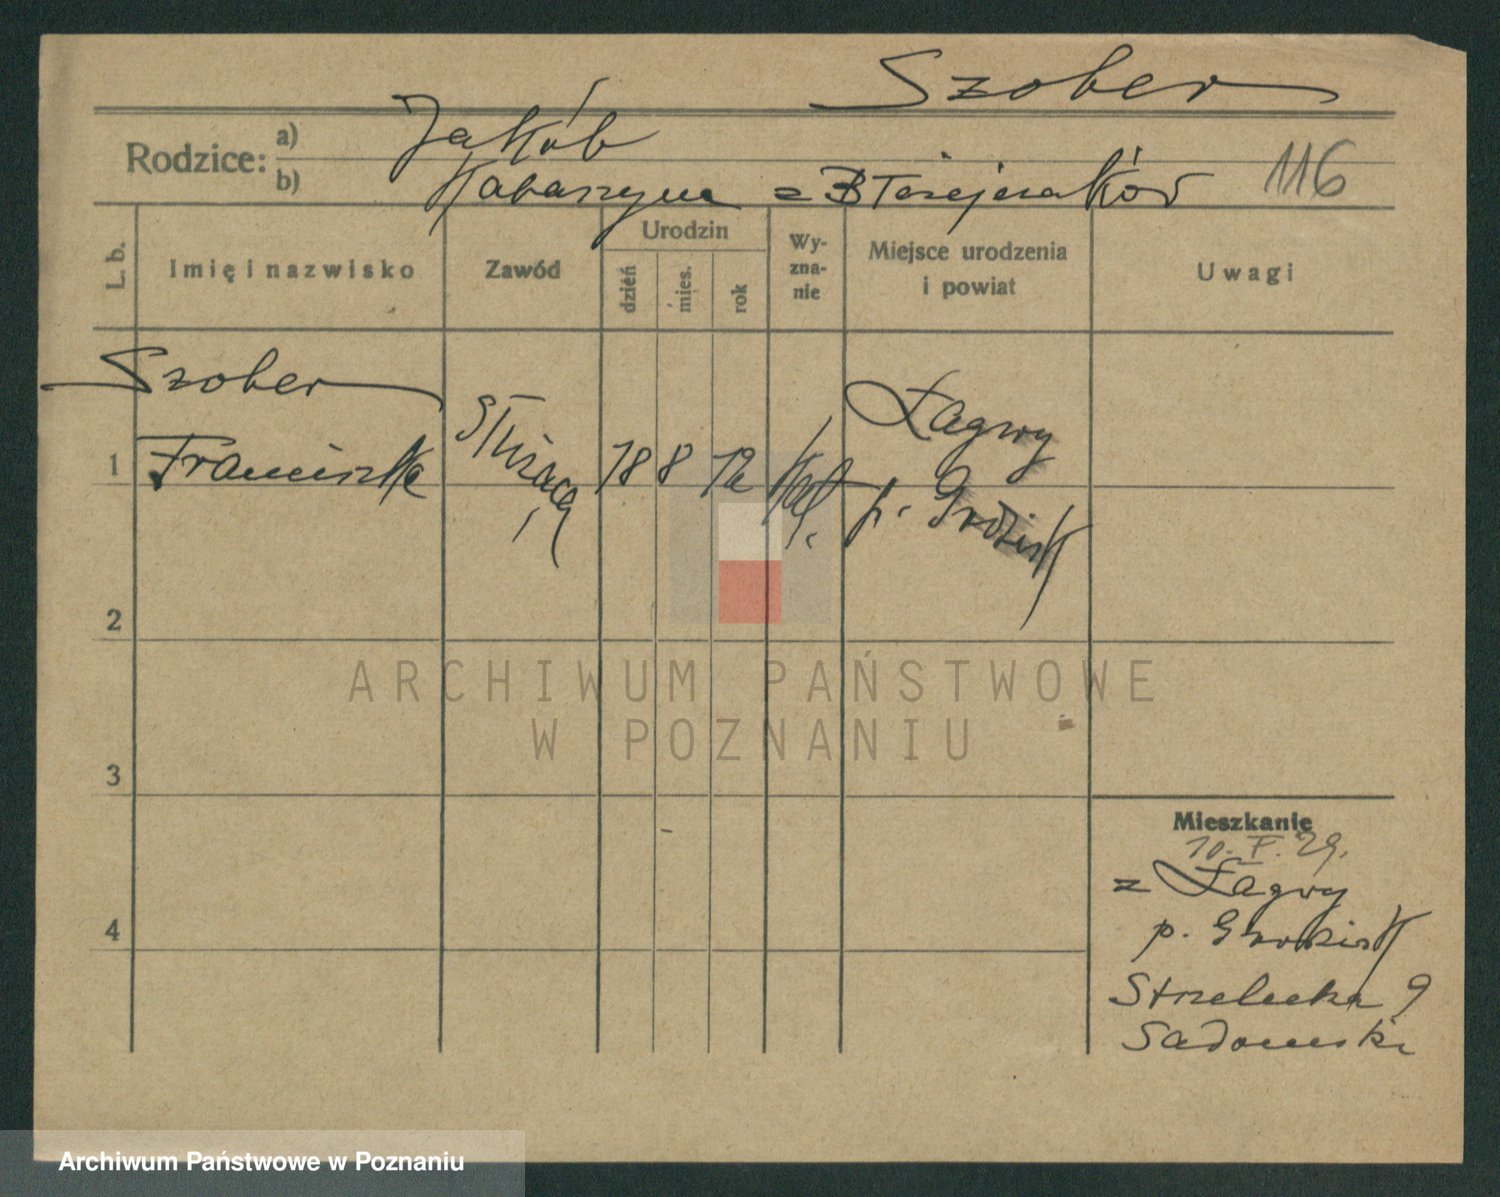 Szober
Rodzice: a) Jakób
b) Katarzyna z
116
L. b.
Imię i nazwisko
Zawód
Urodzin
dzień
mies.
rok
Wy-
zna-
nie
Miejsce urodzenia
i powiat
Uwagi
Szober
1 Franciszka
Służąca
18 8 12
Kat.
Łagwy
p. Grodzisk
2
3
4
Mieszkanie
10. V. 29.
z Łagwy
p. Grodzisk
Strzelecka 9
Sadowski
ARCHIWUM PAŃSTWOWE
W POZNANIU
Archiwum Państwowe w Poznaniu